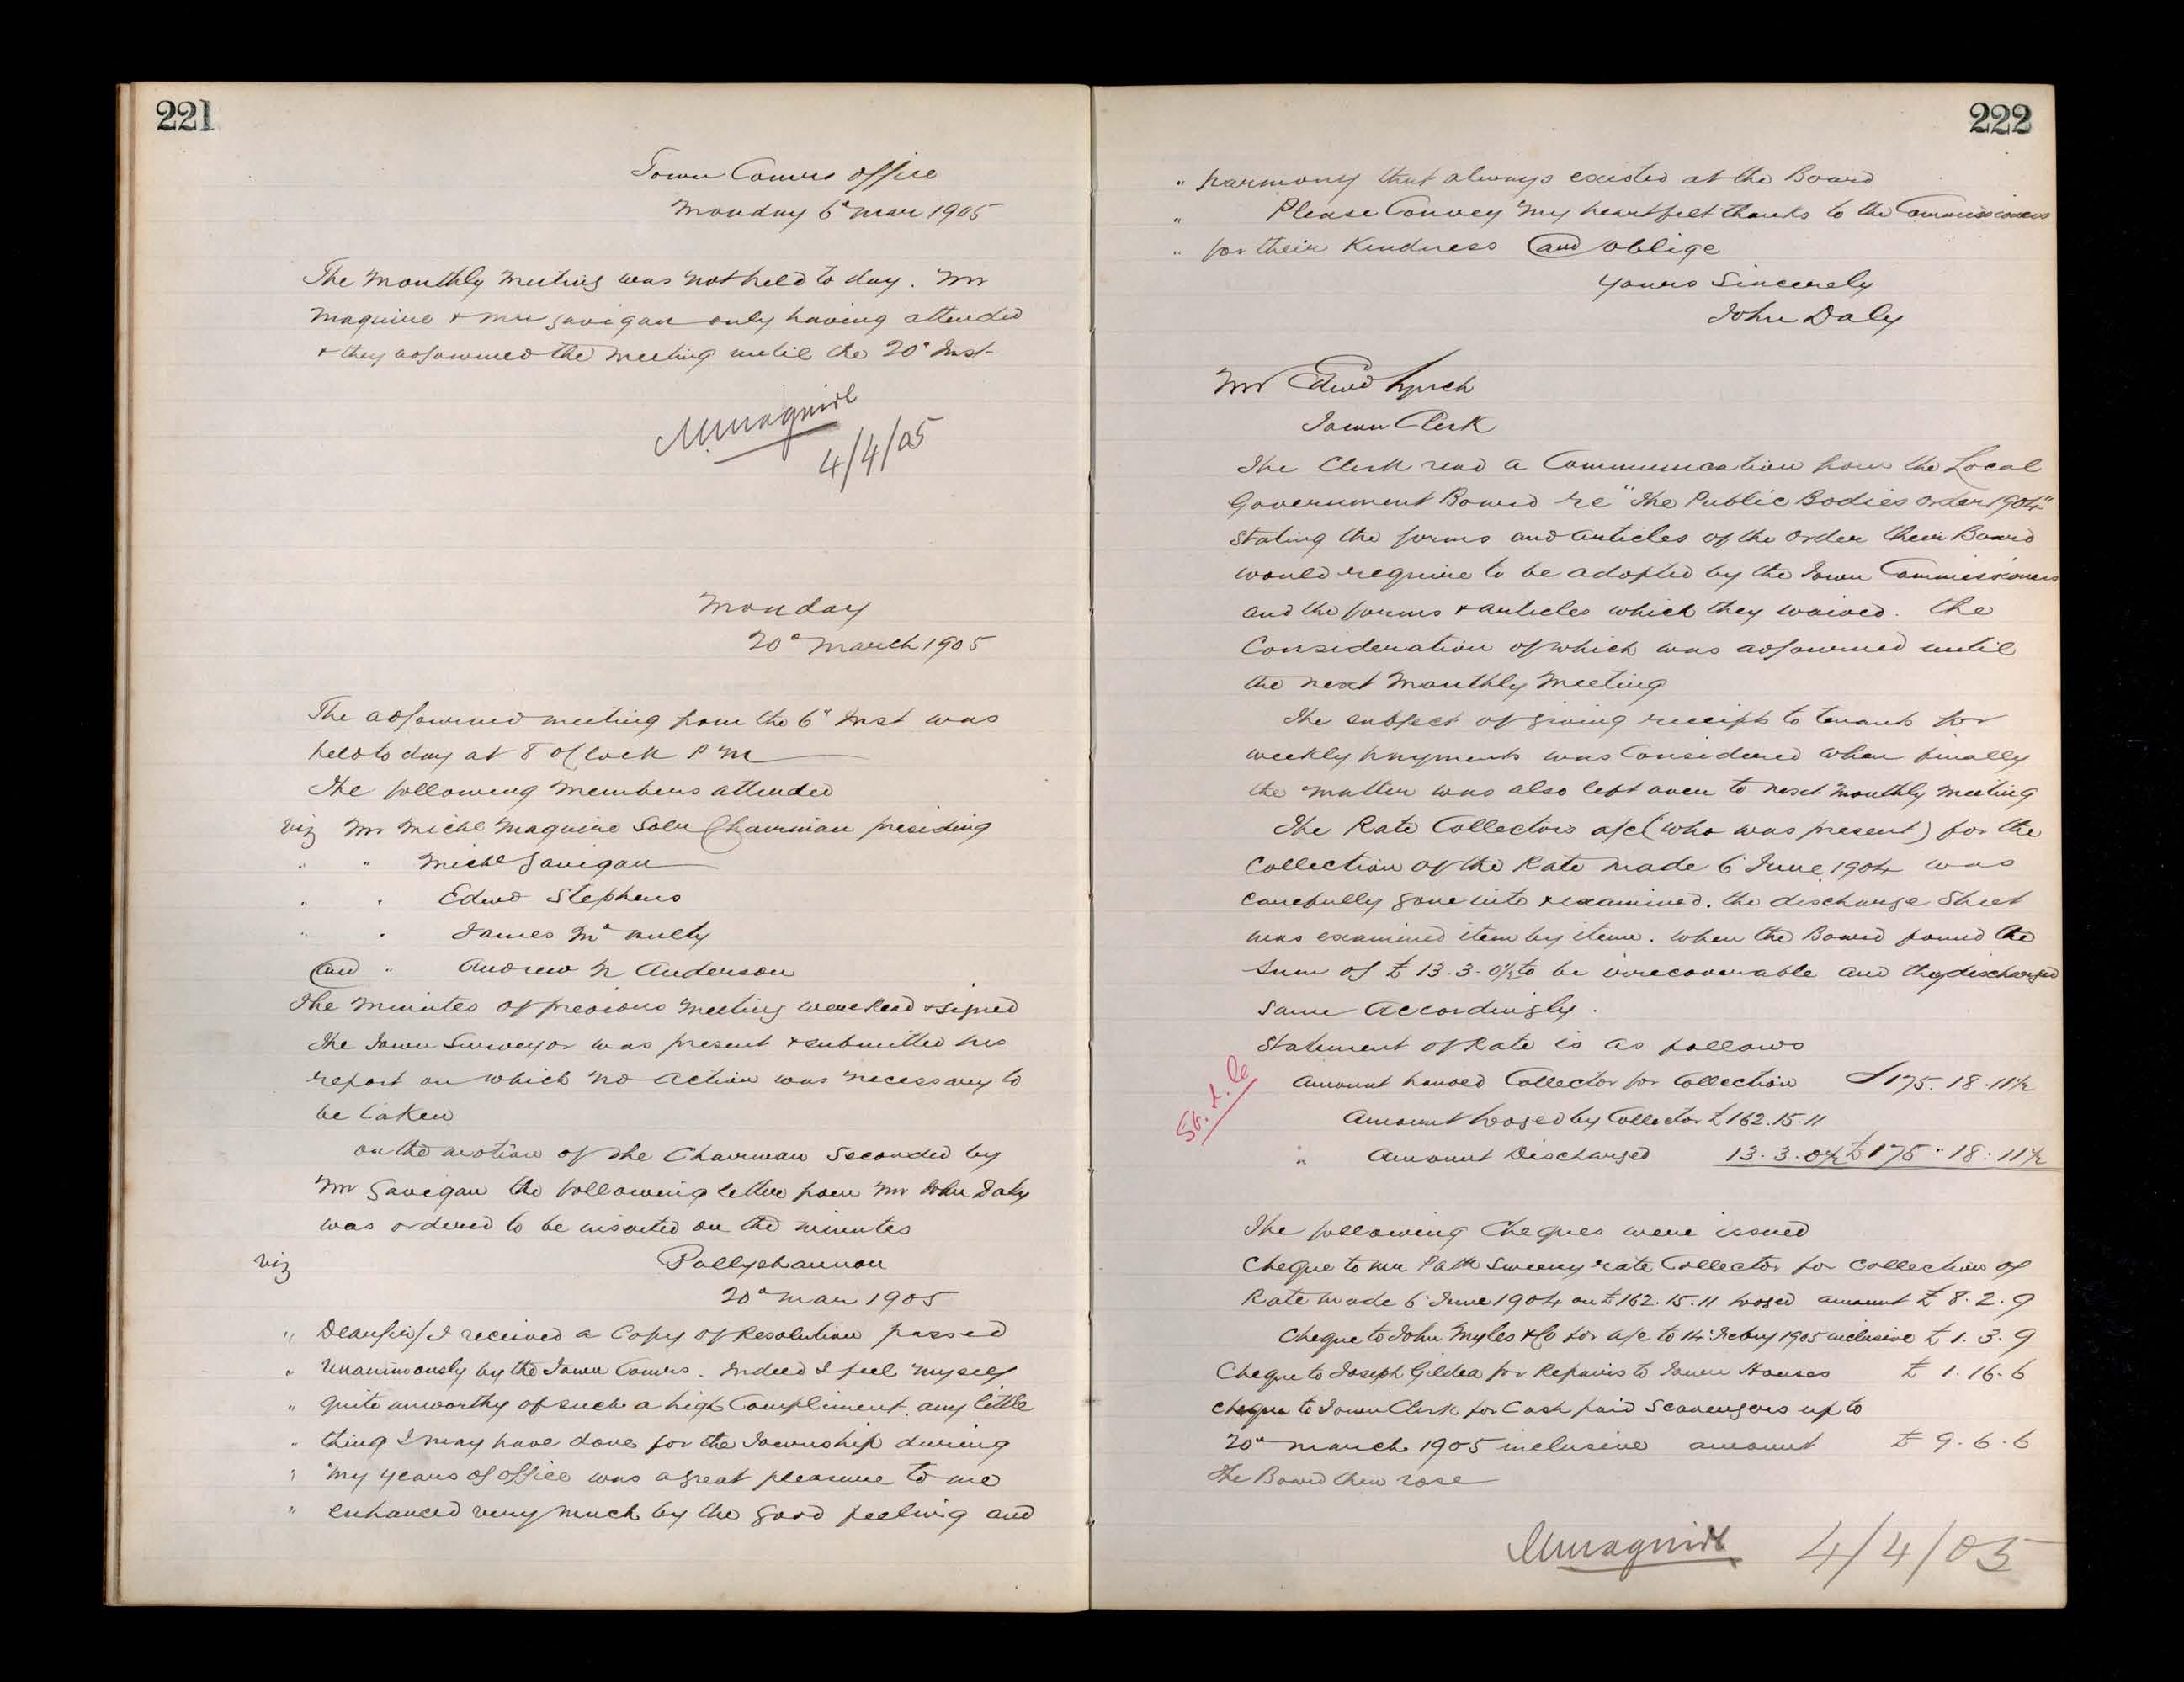 221
Town Comrs office
Monday 6th Mar 1905
The Monthly Meeting was not held to day. Mr
Maguire & Mr Gavigan only having attended
& they adjourned the Meeting until the 20th Inst
M. Maguire
4/4/05
Monday
20th March 1905
The adjourned meeting from the 6th Inst was
held to day at 8 o'clock P M
The following Members attended
viz Mr Michl Maguire Solr Chairman presiding
" " Michl Gavigan
" " Edwd Stephens
" " James McNulty
and " Andrew N Anderson
The Minutes of previous Meeting were Read & signed
The Town Surveyor was present & submitted his
report on which no action was necessary to
be taken
on the motion of the Chairman Seconded by
Mr Gavigan the following letter from Mr John Daly
was ordered to be inserted on the minutes
viz Ballyshannon
20th Mar 1905
" Dear Sir/ I received a Copy of Resolution passed
" Unanimously by the Town Comrs. Indeed I feel myself
" quite unworthy of such a high Compliment. any little
" thing I may have done for the Township during
" my years of office was a great pleasure to me
" enhanced very much by the good feeling and
222
" harmony that always existed at the Board
" Please Convey my heartfelt thanks to the Commissioners
" for their Kindness and oblige
Yours Sincerely
John Daly
Mr Edwd Lynch
Town Clerk
The Clerk read a Communication from the Local
Government Board re "The Public Bodies Order 1904"
Stating the forms and articles of the order their Board
would require to be adopted by the Town Commissioners
and the forms & articles which they waived. the
Consideration of which was adjourned until
the next Monthly Meeting
The subject of giving receipts to tenants for
weekly payments was Considered when finally
the matter was also left over to next Monthly Meeting
The Rate Collectors a/c (who was present) for the
Collection of the Rate made 6th June 1904 was
Carefully gone into & examined. the discharge Sheet
was examined item by item. when the Board found the
Sum of £13.3.0½ to be irrecoverable and they discharged
Same Accordingly.
Statement of Rate is as follows
Amount handed Collector for Collection £175.18.11½
Amount lodged by Collector £162.15.11
" Amount Discharged 13.3.0½ £175"18.11½
The following Cheques were issued
Cheque to Mr Patk Sweeny rate Collector for Collection of
Rate made 6th June 1904 on £162.15.11 lodged amount £8.2.9
Cheque to John Myles & Co for a/c to 14th Febry 1905 inclusive £1.3.9
Cheque to Joseph Gildea for Repairs to Town Houses £1.16.6
Cheque to Town Clerk for Cash paid Scavengers up to
20th March 1905 inclusive amount £9.6.6
The Board then rose
M Maguire 4/4/05